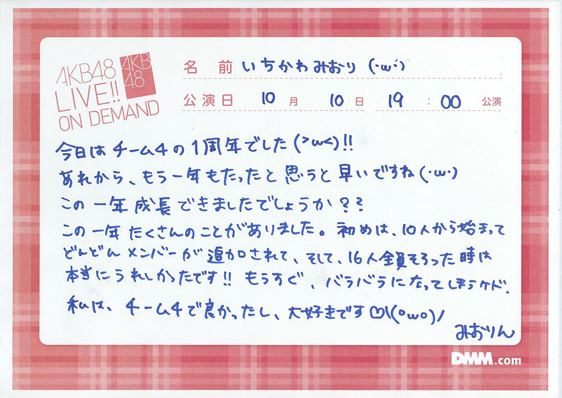 AKB48
LIVE!!
ON DEMAND
AKB
48
名前 いちかわみおり (・ω・)
公演日 10月 10日 19:00 公演
今日は チーム4の1周年でした(>ω<)!!
あれから、もう一年もたったと思うと早いですね(・ω・)
この一年成長できましたでしょうか??
この一年たくさんのことがありました。初めは、10人から始まって
どんどんメンバーが追加されて、そして、16人全員そろった時は
本当にうれしかったです!! もうすぐ、バラバラになってしまうケド、
私は、チーム4で良かったし、大好きです♡\(oωo)/
みおりん
DMM.com